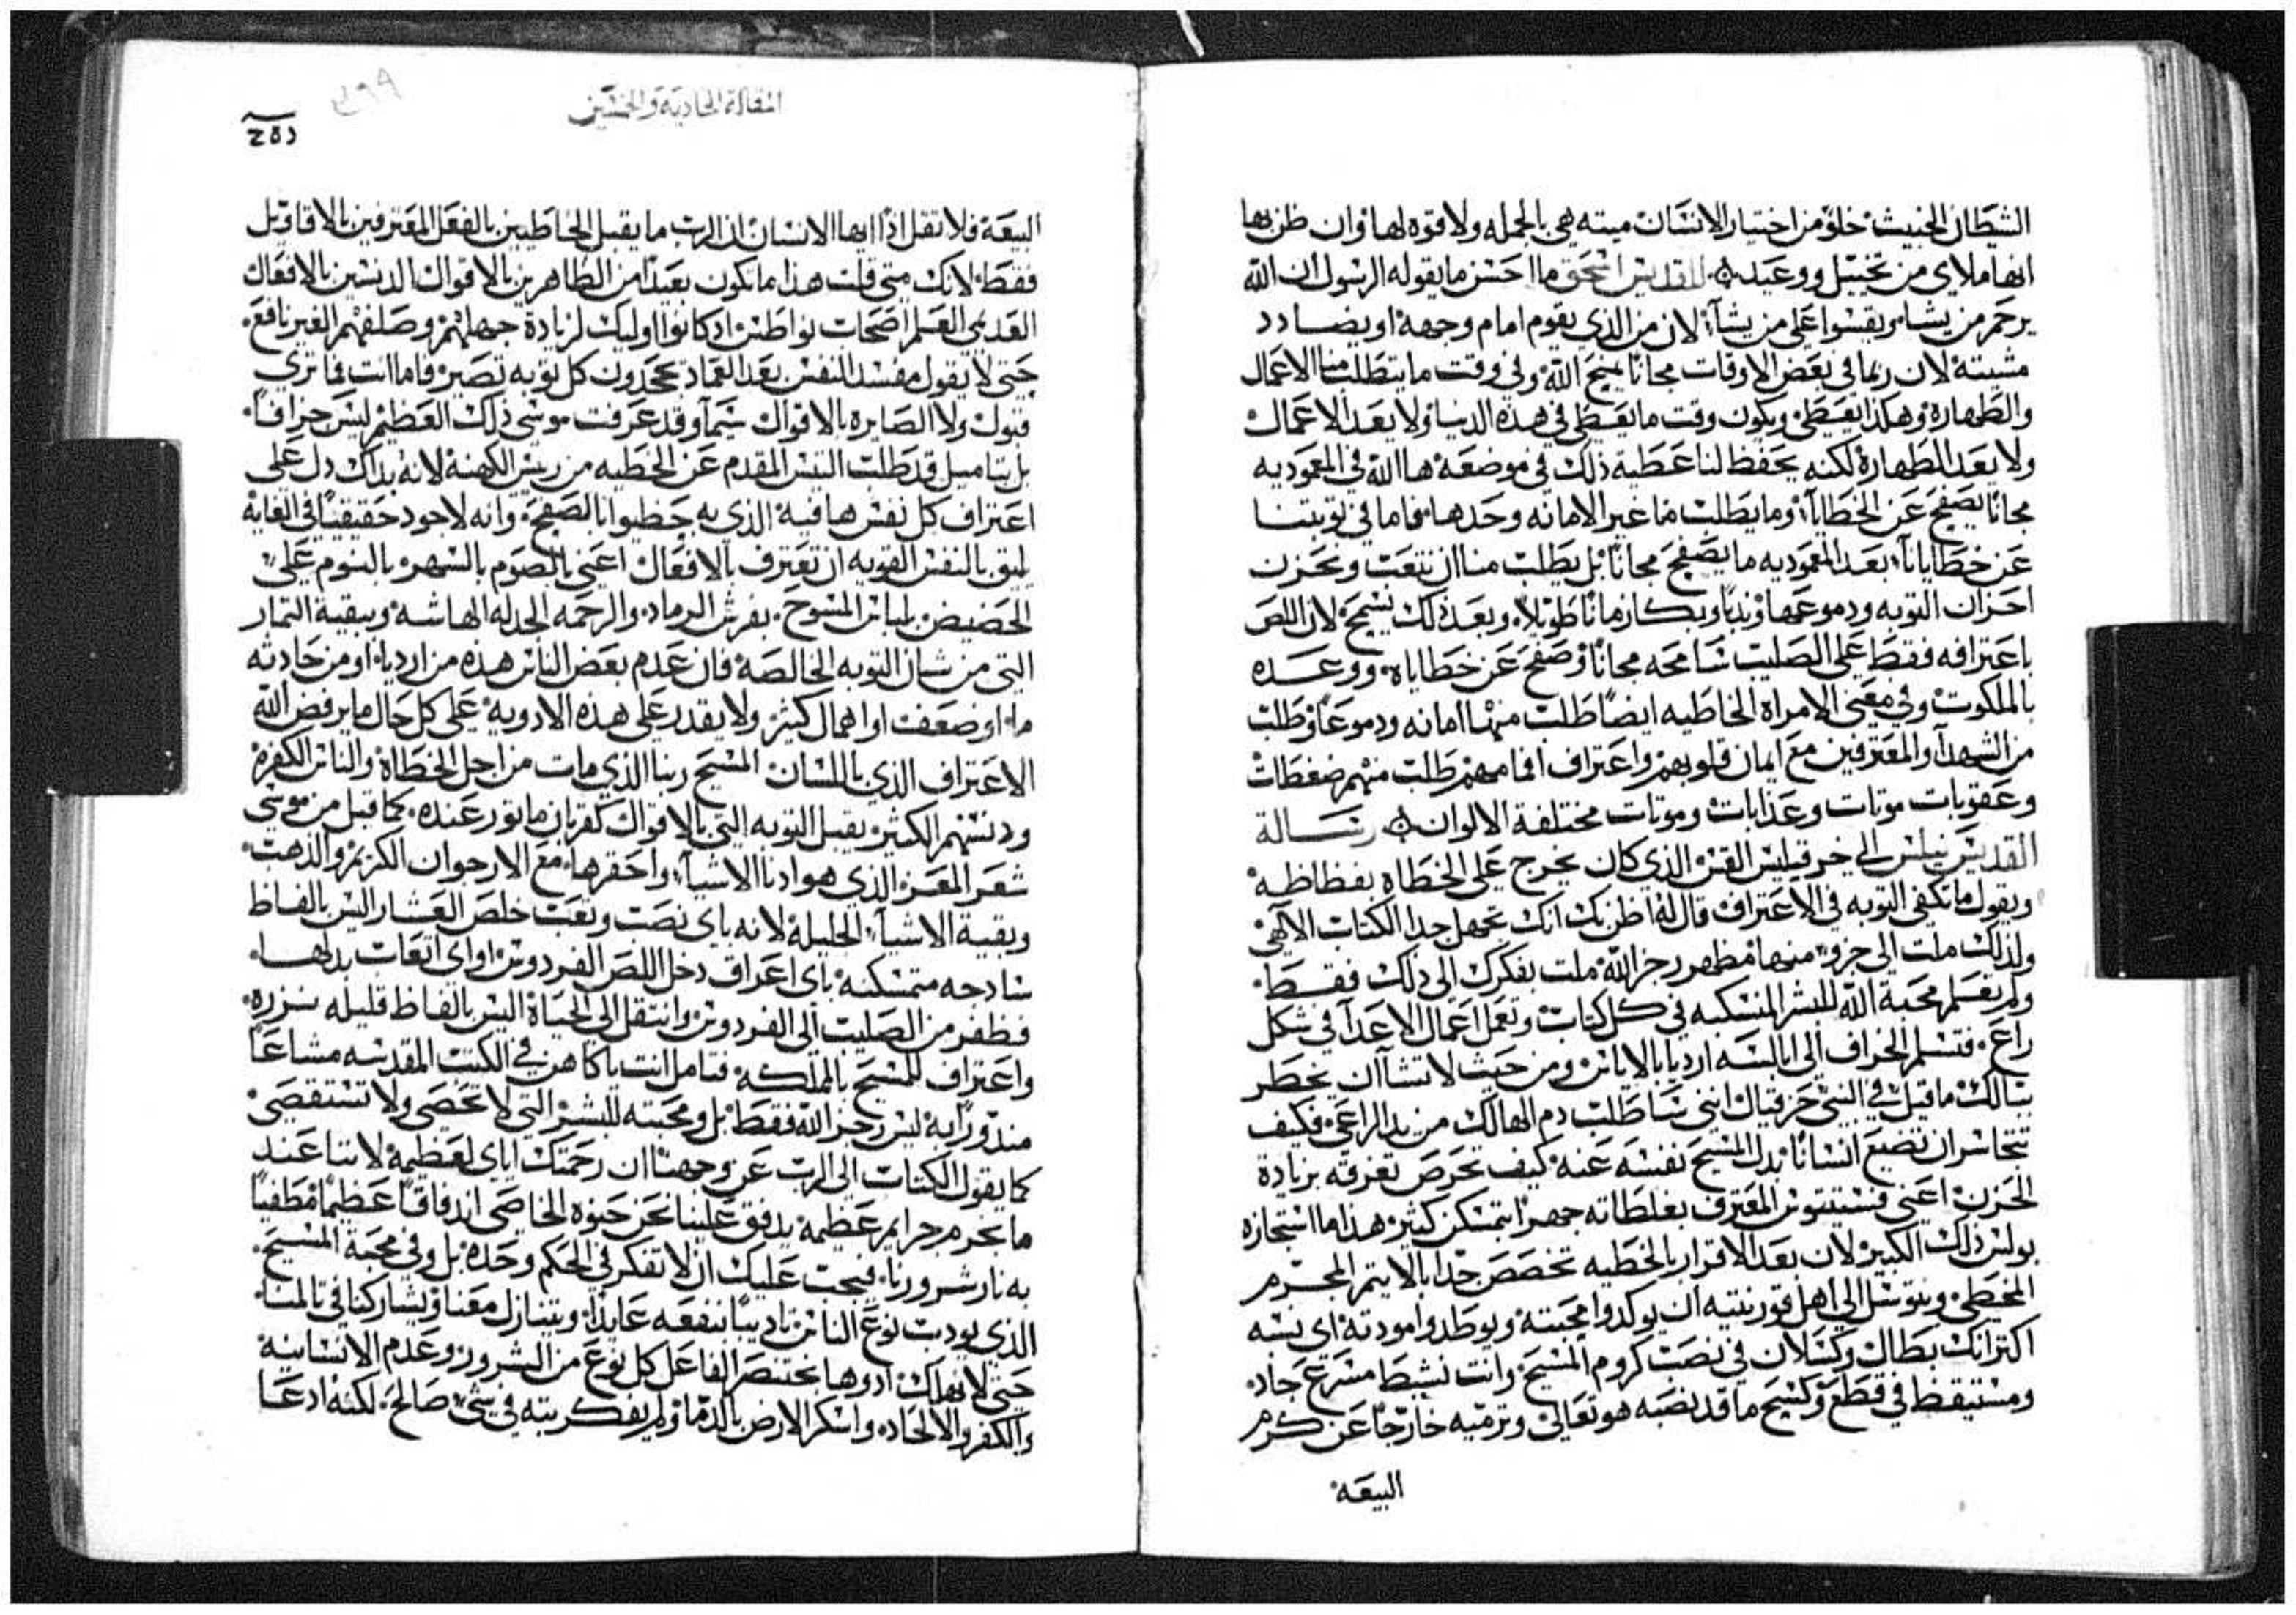 الشيطان الخبيث خلو من اختيار الانسان ميته هي بالجمله ولا قوه لها وان ظن بها
انها ملاى من تخييل ووعيد للقديس اسحق ما احسن ما يقوله الرسول ان الله
يرحم من يشا ويقسوا على من يشآ لان من الذي يقوم امام وجهه او يضادد
مشيته لان ربما في بعض الاوقات مجانًا يمنح الله وفي وقت ما يتطلب منا الاعمال
والطهاره وهكذا يعطى ويكون وقت ما يعطي في هذه الدنيا ولا بعد الاعمال
ولا بعد الطهارة لكنه يحفظ لنا عطية ذلك في موضعه ها الله في المعموديه
مجانًا يصفح عن الخطايآ وما يطلب منا غير الامانه وحدها فاما في توبتنا
عن خطايانا بعد المعموديه ما يصفح مجانًا بل يطلب منا ان نتعب ونحزن
احزان التوبه ودموعها وندبًا وبكا زمانًا طويلًا وبعد ذلك يسمح لان اللص
باعترافه فقط على الصليب سامحه مجانًا وصفح عن خطاياه ووعده
بالملكوت وفي معنى الامراة الخاطيه ايضًا طلب منها امانه ودموعًا وطلب
من الشهدآ والمعترفين مع ايمان قلوبهم واعتراف افمامهم طلب منهم ضغطات
وعقوبات موتات وعذابات وموتات مختلفة الالوان رسالة
القديس نيلس الى خرقيلس القس الذي كان يخرج على الخطاه بفظاظه
ويقول ما تكفي التوبه في الاعتراف قال له اظن بك انك تجهل جدا الكتاب الالهي
ولذلك ملت الى جزو منها مظهر رجز الله ملت بفكرك الى ذلك فقط
ولم تعلم محبة الله للبشر المنسكبه في كل كتاب وتعمل اعمال الاعدآ في شكل
راع فتسلم الخراف الى ابالسه ارديا بالاياس ومن حيث لا تشآ ان يخطر
ببالك ما قيل في النبي حزقيال انني ساطلب دم الهالك من يد الراعي فكيف
تتجاسر ان تضيع انسانًا بدل المسيح نفسه عنه كيف تحرص تغرقه بزيادة
الحزن اعني المعترف بغلطاته جهرًا بتمسكن كثير هذا ما استجازه
بولس ذلك الكبير لان بعد الاقرار بالخطيه تخصص جدًا بالا يتم المجرم
المخطي ويتوسل الى اهل قورنتيه ان يوكدوا محبته ويوطدوا مودته اى نسه
اكترانك بطال وكسلان في نصب كروم المسيح وانت نشيط مسرع جاد
ومستيقظ في قطع وكسح ما قد نصبه هو تعالى وترميه خارجًا عن كرم
البيعه
المقالة الحاديه والخمسين
البيعة فلا تقل اذًا ايها الانسان ان الرب ما يقبل الخاطيين بالفعل المعترفين بالاقاويل
فقط لانك متى قلت هذا ما تكون بعيدًا من الطاهرين بالاقوال الدنسين بالافعال
العديمي العلم اصحاب نواطس اذ كانوا اوليك لزيادة جهلهم وصلفهم الغير نافع
حتى لا يقول مفسد النفس بعد العماد تجحدون كل توبه تصير فاما انت فما ترى
قبول ولا الصايره بالاقوال سيمآ وقد عرفت موسى ذلك العظيم ليس جزافًا
بل بتاميل قد طلب التيس المقدم عن الخطيه من ريس الكهنة لانه بذاك دل على
اعتراف كل نفس هافيه الذي به حظيوا بالصفح وانه لاجود حقيقيًا في الغايه
يليق بالنفس القويه ان تعترف بالافعال اعني بالصوم بالسهر بالنوم على
الحضيض بلباس المسوح بفرش الرماد والرحمه الجدله الهاشه وببقية الثمار
التي من شان التوبه الخالصه فان عدم بعض الناس هذه من ارديا او من حادثه
ما او ضعف او اهمال كثير ولا يقدر على هذه الادويه على كل حال ما يرفض الله
الاعتراف الذي باللسان المسيح ربنا الذي مات من اجل الخطاة والناس الكفره
ودنسهم الكثير يقبل التوبه التي بالاقوال كقربان ماثور عنده كما قبل من موسى
شعر المعز الذي هو ادنا الاشيآ واحقرها مع الارجوان الكريم والذهب
وبقية الاشيآ الجليله لانه باى نصب وتعب خلص العشار اليس بالفاظ
سادجه متمسكنه باى اعراق دخل اللص الفردوس او اى اتعاب بذلها
فظفر من الصليب الى الفردوس وانتقل الى الحياة اليس بالفاظ قليله نزره
واعتراف للمسيح بالمملكه فتامل انت يا كاهن في الكتب المقدسه مشاعًا
مندورًا به ليس رجز الله فقط بل ومحبته للبشر التي لا تحصى ولا تستقصى
كما يقول الكتاب الى الرب عن وجهنا ان رحمتك اياي لعظيمه لاننا عند
ما نجرم جرايم عظيمه يدفق علينا نحن حنوه الخاصي اندفاقًا عظيمًا مطفيًا
به نار شرورنا فيجب عليك ان لا تفكر في الحكم وحده بل وفي محبة المسيح
الذي يودب نوع الناس تاديبًا نفعه عايدًا ويتنازل معنا ويشاركنا في تالمنا
حتى لا نهلك اذ وها بختنصر الفاعل كل نوع من الشرور وعدم الانسانيه
والكفر والالحاد واسكر الارض بالدما ولم يفكر بته في شي صالح لكنه ادعا